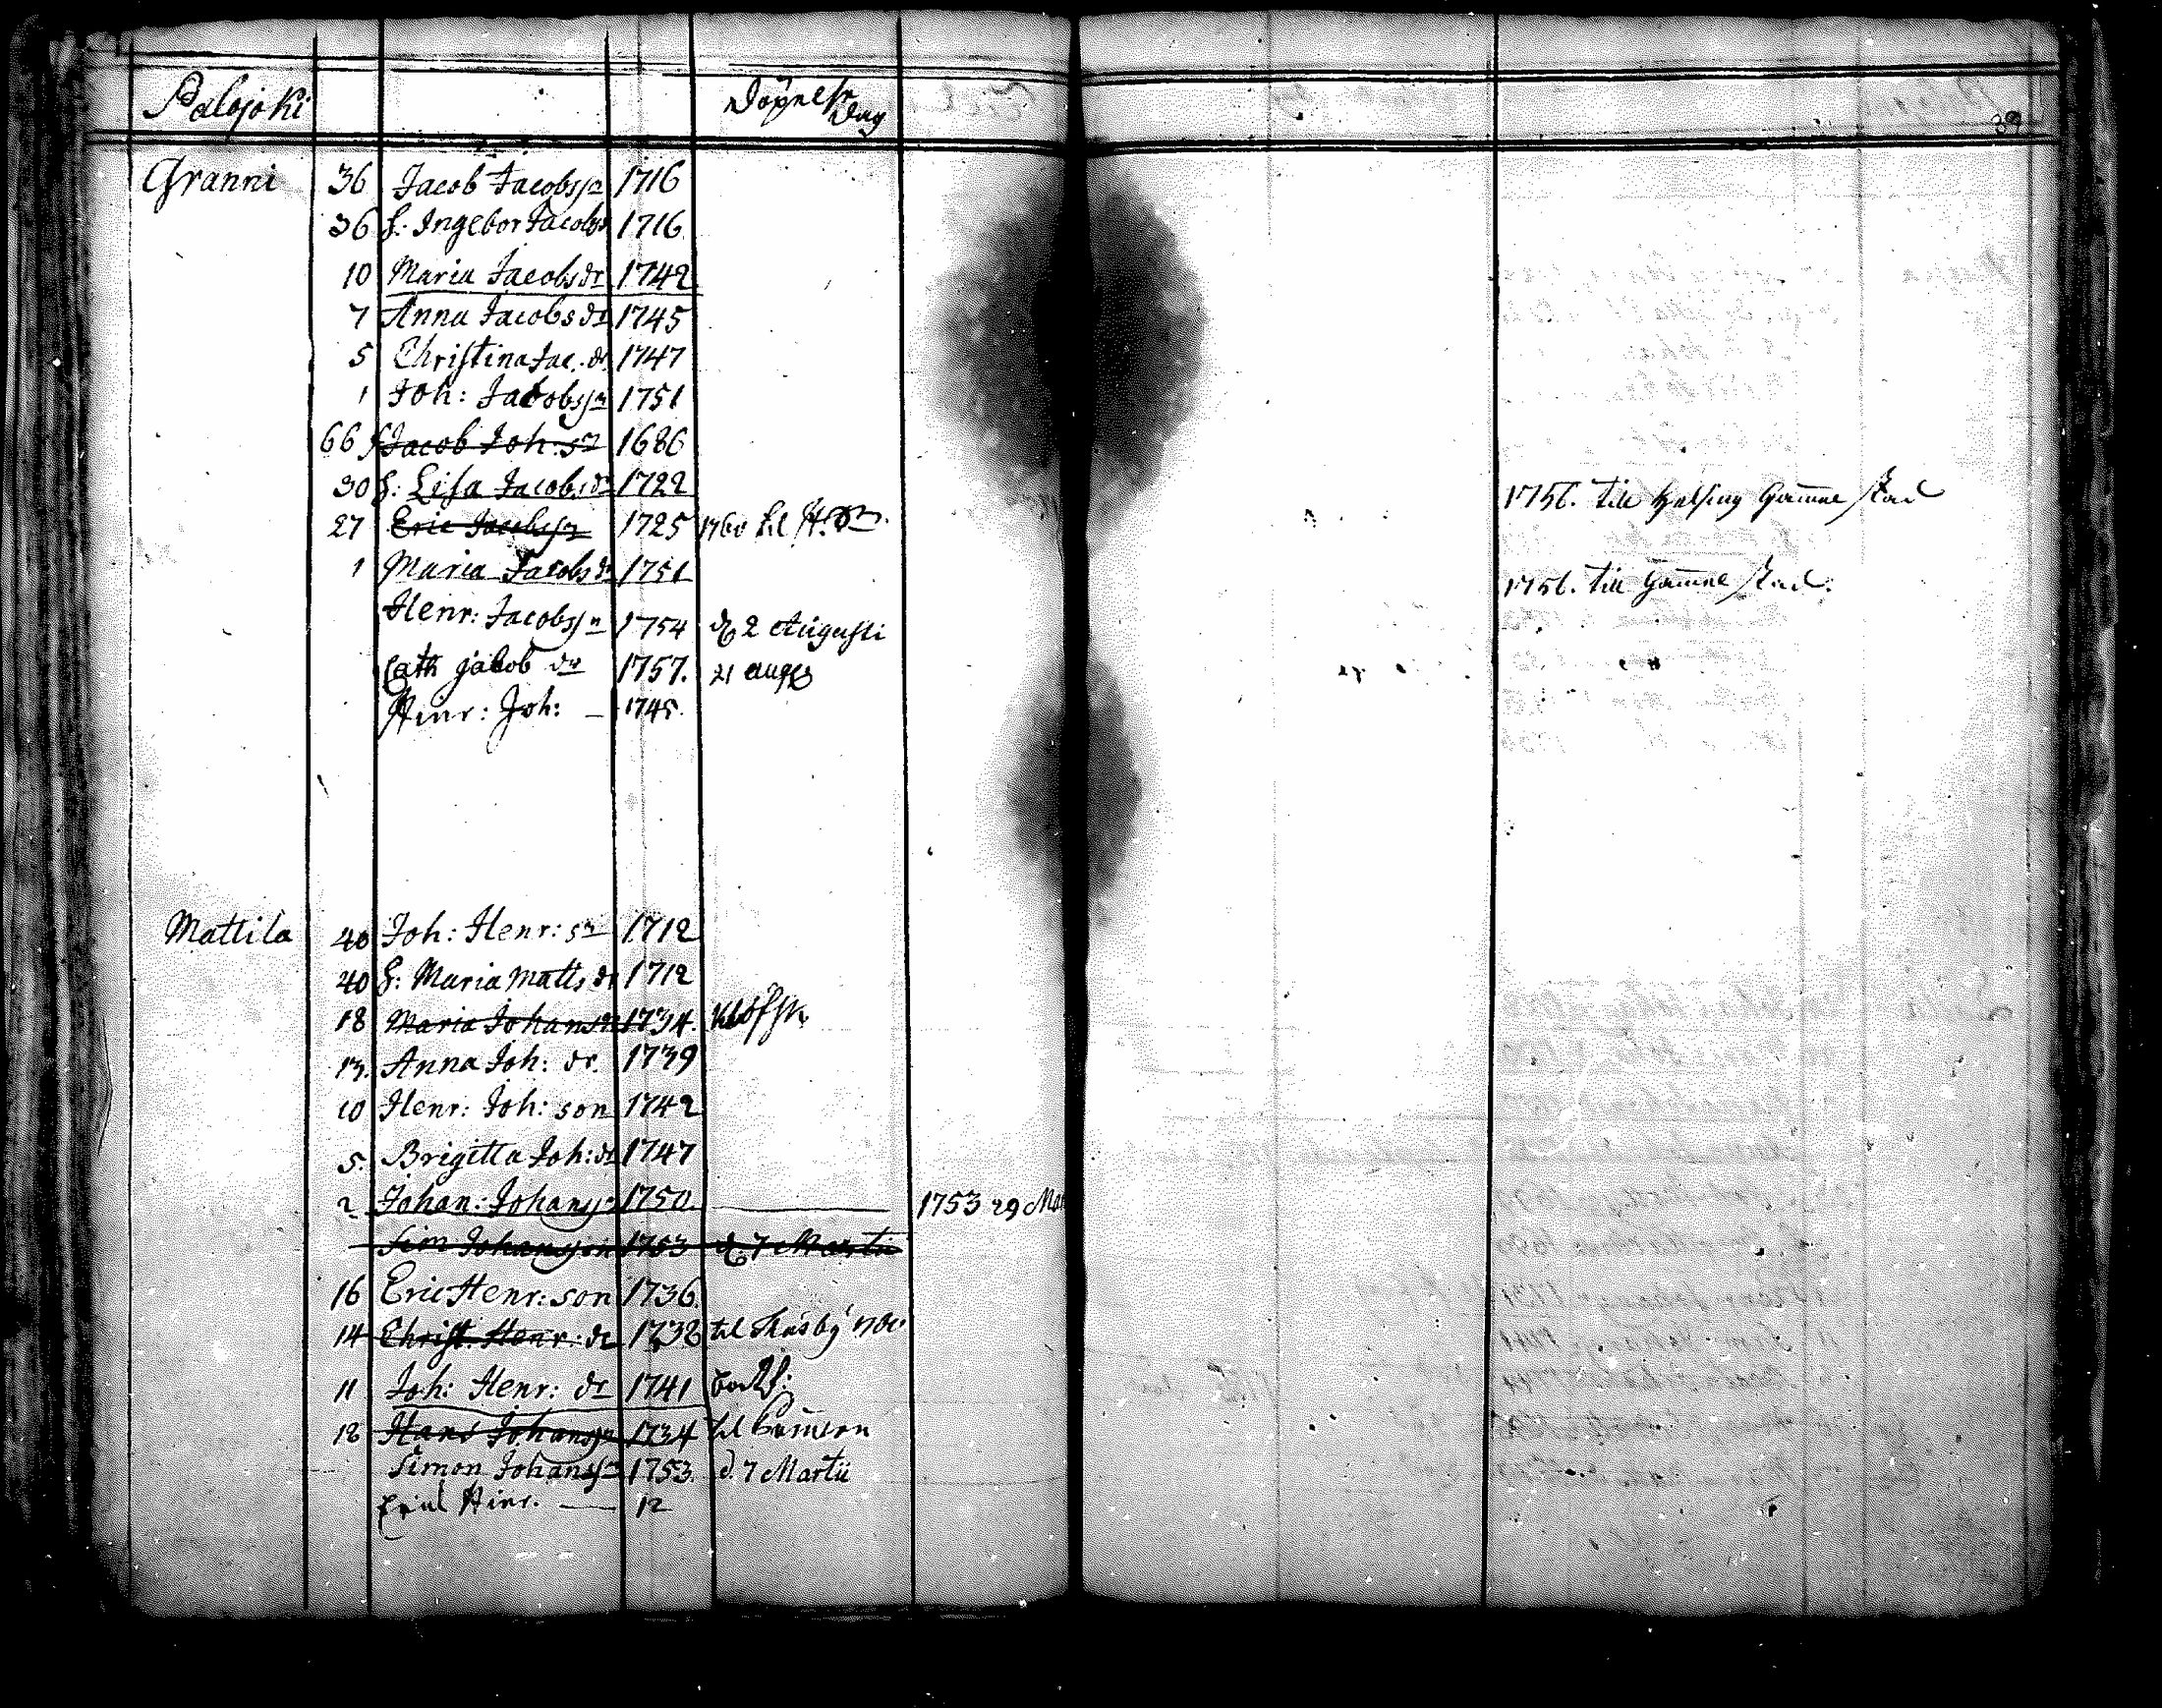 Palojoki Dag 89
Granni 36 Jacob Jacobssn 1716
36 h: Ingebor Jacobs 1716
10 Maria Jacobsdr 1742
7 Anna Jacobsdr 1745
5 Christina Jac. dr. 1747
1 Joh: Jacobssn 1751
66 Jacob Joh: sn 1686
30 h: Lisa Jacobsdr 1722 1756. till Helsing Gamne stad
27 Eric Jacobssn 1725 1760 til
1 Maria Jacobsdr 1751 1756. till Gamne stad.
Henr: Jacobssn 1754 d 2 Augusti
Cath Jacob dr 1757. 21 aug
Hinr: Joh: — 1745.
Mattila 40 Joh: Henr: sn 1712
40 h: Maria Matts dr 1712
18 Maria Johans 1734.
13. Anna Joh: dr. 1739
10 Henr: Joh: son 1742
5. Brigitta Joh: dr 1747
2 Johan: Johanssn 1750. 1753 29 Mar
Sim Johansson 1753 d. 7 Martii
16 Eric Henr: son 1736.
14 Christ. Henr: dr 1738 til
11 Joh: Henr: dr 1741
18 Hans Johanssn 1734 til
Simon Johanssn 1753. d. 7 Martii
Hinr. — 12